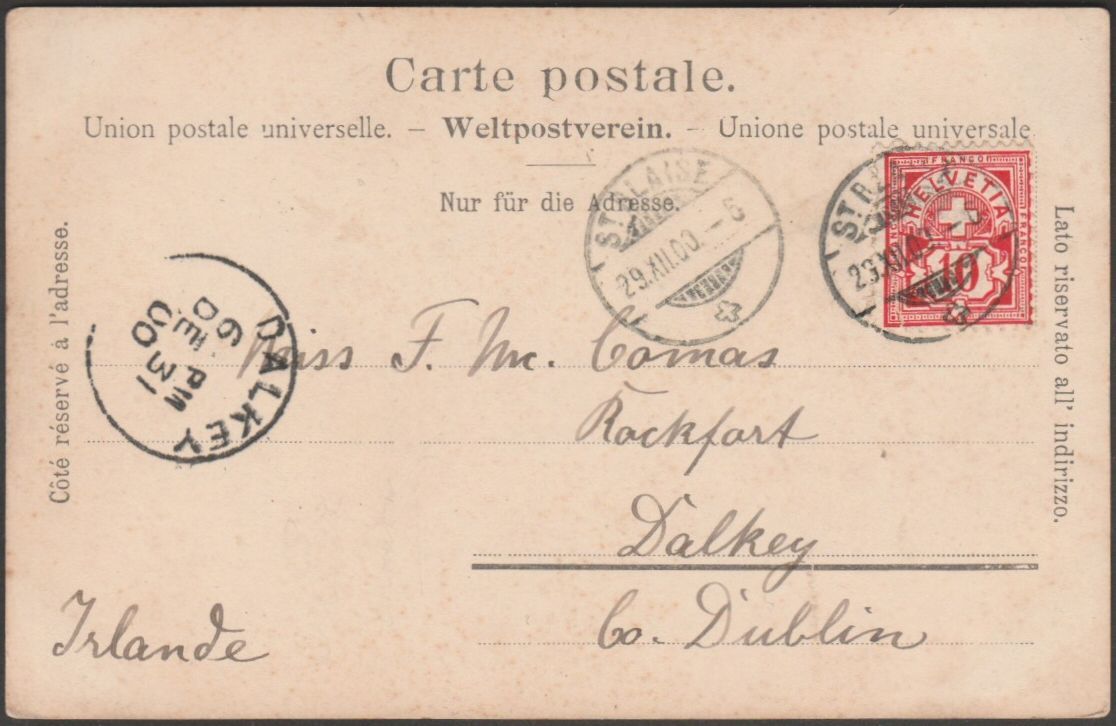 Carte postale.
Union postale universelle. – Weltpostverein. – Unione postale universale
Nur für die Adresse.
Côté réservé à l'adresse.
Lato riservato all' indirizzo.
ST BLAISE
29.XII.00. – 5
ST BLAISE
29.XII.0
FRANCO
HELVETIA
FRANCO
FRANCO
10
DALKEY
6 PM
DE 31
00
Miss F. Mc. Comas
Rockfort
Dalkey
Co. Dublin
Irlande